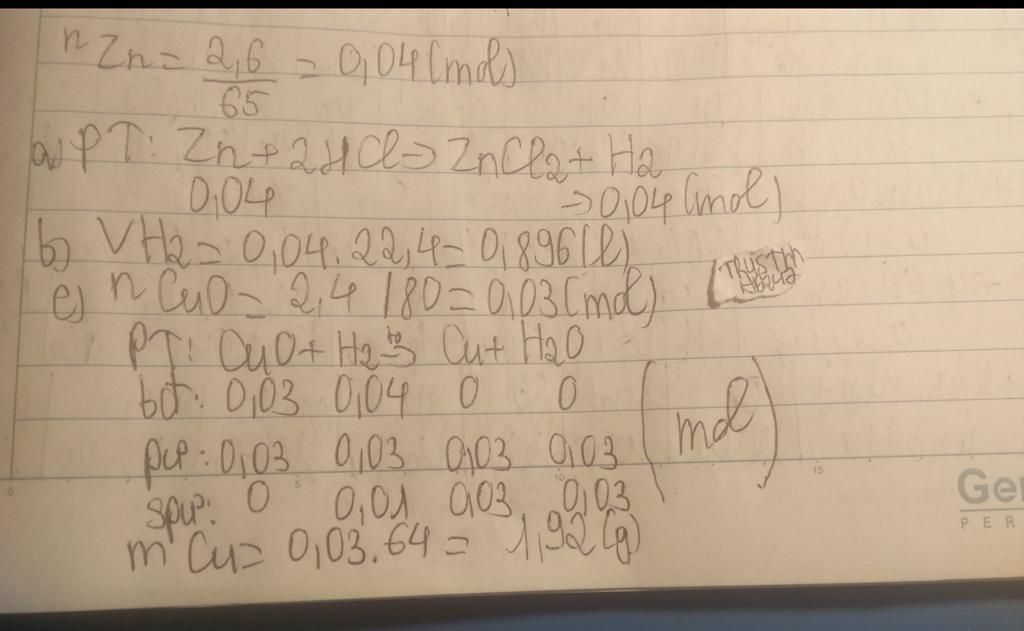 nZn = 2,6/65 = 0,04(mol)
a) PT: Zn + 2HCl → ZnCl2 + H2
0,04 → 0,04(mol)
b) VH2 = 0,04.22,4 = 0,896(l)
c) nCuO = 2,4/80 = 0,03(mol)
PT: CuO + H2 t°→ Cu + H2O
bđ: 0,03 0,04 0 0
pư: 0,03 0,03 0,03 0,03 (mol)
spư: 0 0,01 0,03 0,03
mCu = 0,03.64 = 1,92(g)
0 5 10 15
Ger
PER